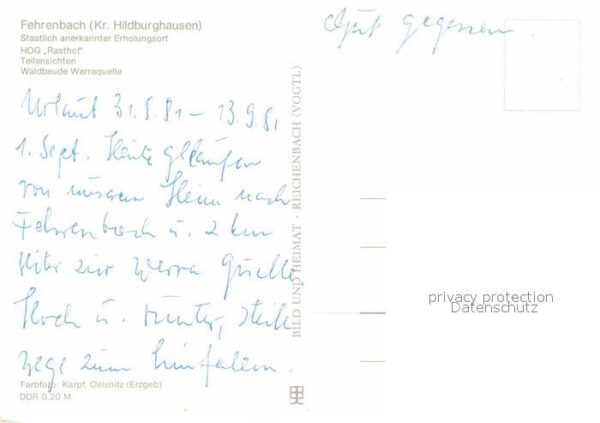 Fehrenbach (Kr. Hildburghausen)
Staatlich anerkannter Erholungsort
HOG „Rasthof"
Teilansichten
Waldbaude Werraquelle
Urlaub 31.8.81 – 13.9.81
1. Sept. Heute gelaufen
von unserem Heim nach
Fehrenbach u. 2 km
weiter zur Werra Quelle
Hoch u. runter, steile
Wege zum hinfallen.
Gut gegessen.
Farbfoto: Karpf, Oelsnitz (Erzgeb)
DDR 0,20 M
BILD UND HEIMAT · REICHENBACH (VOGTL)
privacy protection
Datenschutz